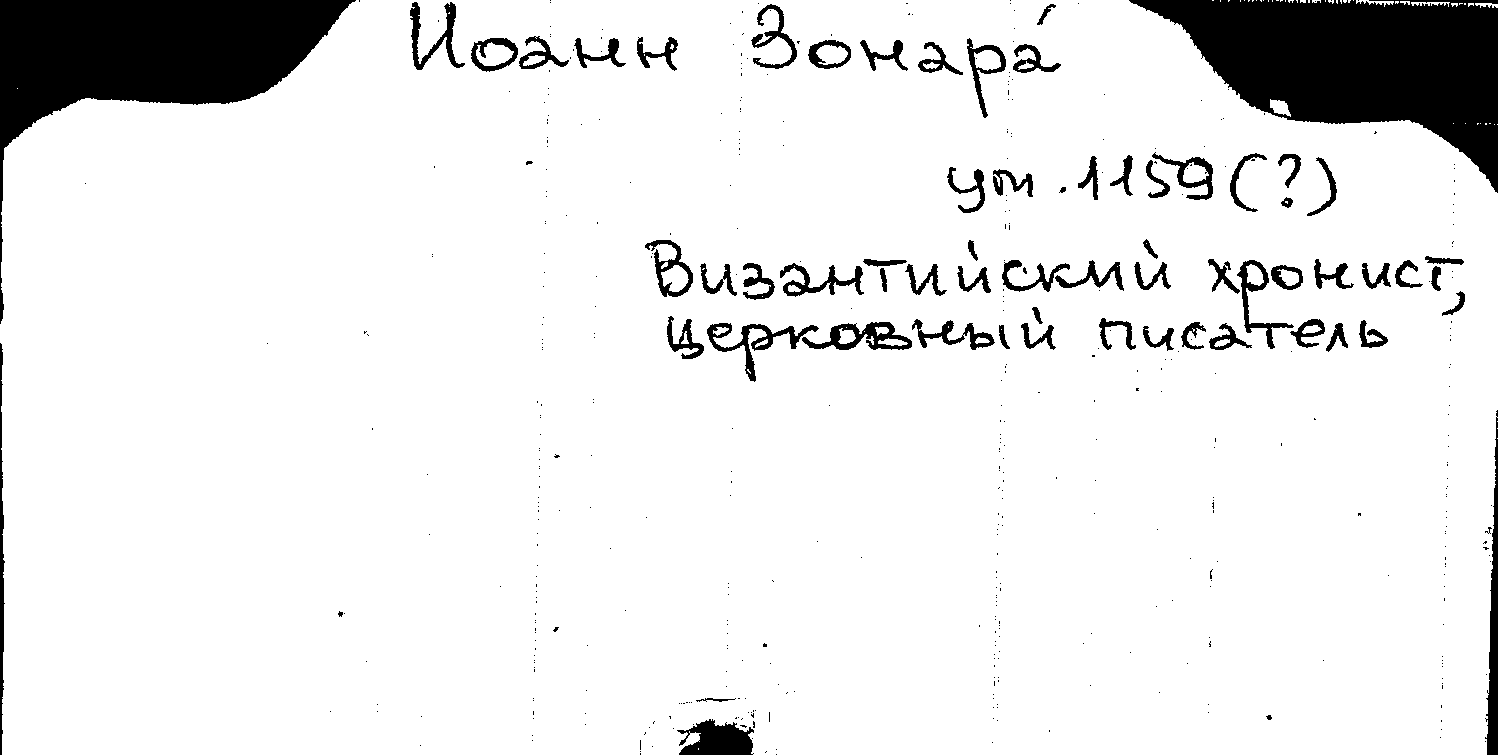 Иоанн Зонара́
ум. 1159 (?)
Византийский хронист,
церковный писатель